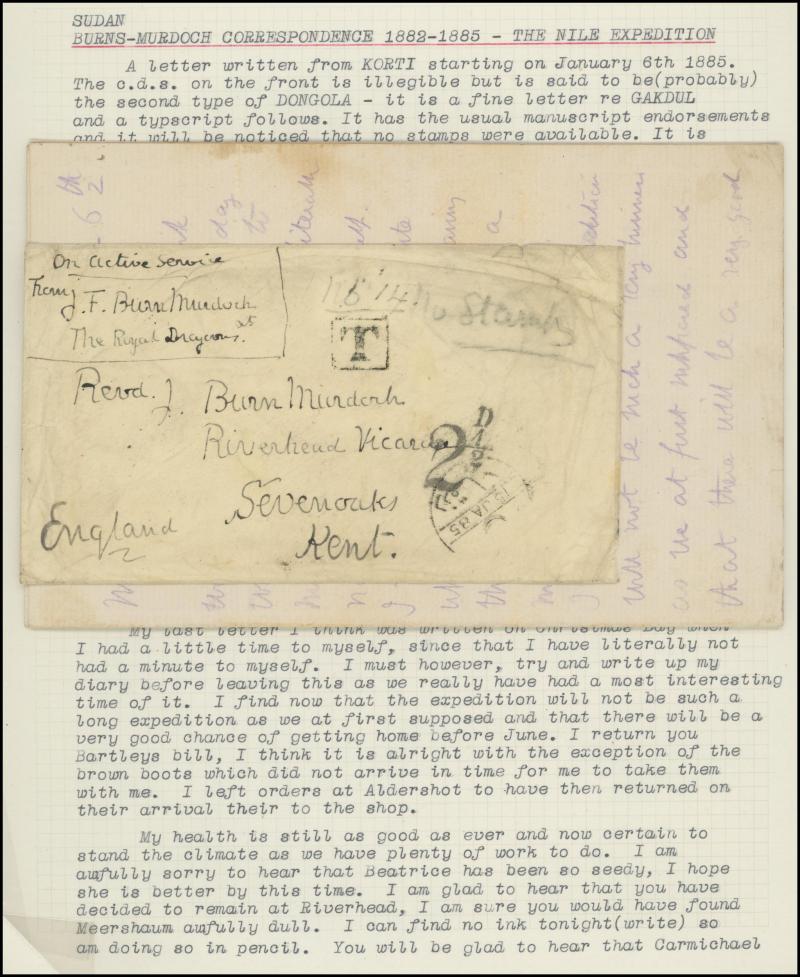 SUDAN
BURNS-MURDOCH CORRESPONDENCE 1882-1885 - THE NILE EXPEDITION
A letter written from KORTI starting on January 6th 1885.
The c.d.s. on the front is illegible but is said to be(probably)
the second type of DONGOLA - it is a fine letter re GAKDUL
and a typscript follows. It has the usual manuscript endorsements
and it will be noticed that no stamps were available. It is
6th
2
day
to
literally
a
expedition
will not be such a long business
as we at first supposed and
that there will be a very good
On Active Service
From J. F. Burn Murdoch
The Royal Dragoons
No Stamps
T
Revd. J. Burn Murdoch
Riverhead Vicarage
Sevenoaks
Kent.
England
2½D
JA 85
My last letter I think was written on Christmas Day when
I had a little time to myself, since that I have literally not
had a minute to myself. I must however, try and write up my
diary before leaving this as we really have had a most interesting
time of it. I find now that the expedition will not be such a
long expedition as we at first supposed and that there will be a
very good chance of getting home before June. I return you
Bartleys bill, I think it is alright with the exception of the
brown boots which did not arrive in time for me to take them
with me. I left orders at Aldershot to have then returned on
their arrival their to the shop.
My health is still as good as ever and now certain to
stand the climate as we have plenty of work to do. I am
awfully sorry to hear that Beatrice has been so seedy, I hope
she is better by this time. I am glad to hear that you have
decided to remain at Riverhead, I am sure you would have found
Meershaum awfully dull. I can find no ink tonight(write) so
am doing so in pencil. You will be glad to hear that Carmichael